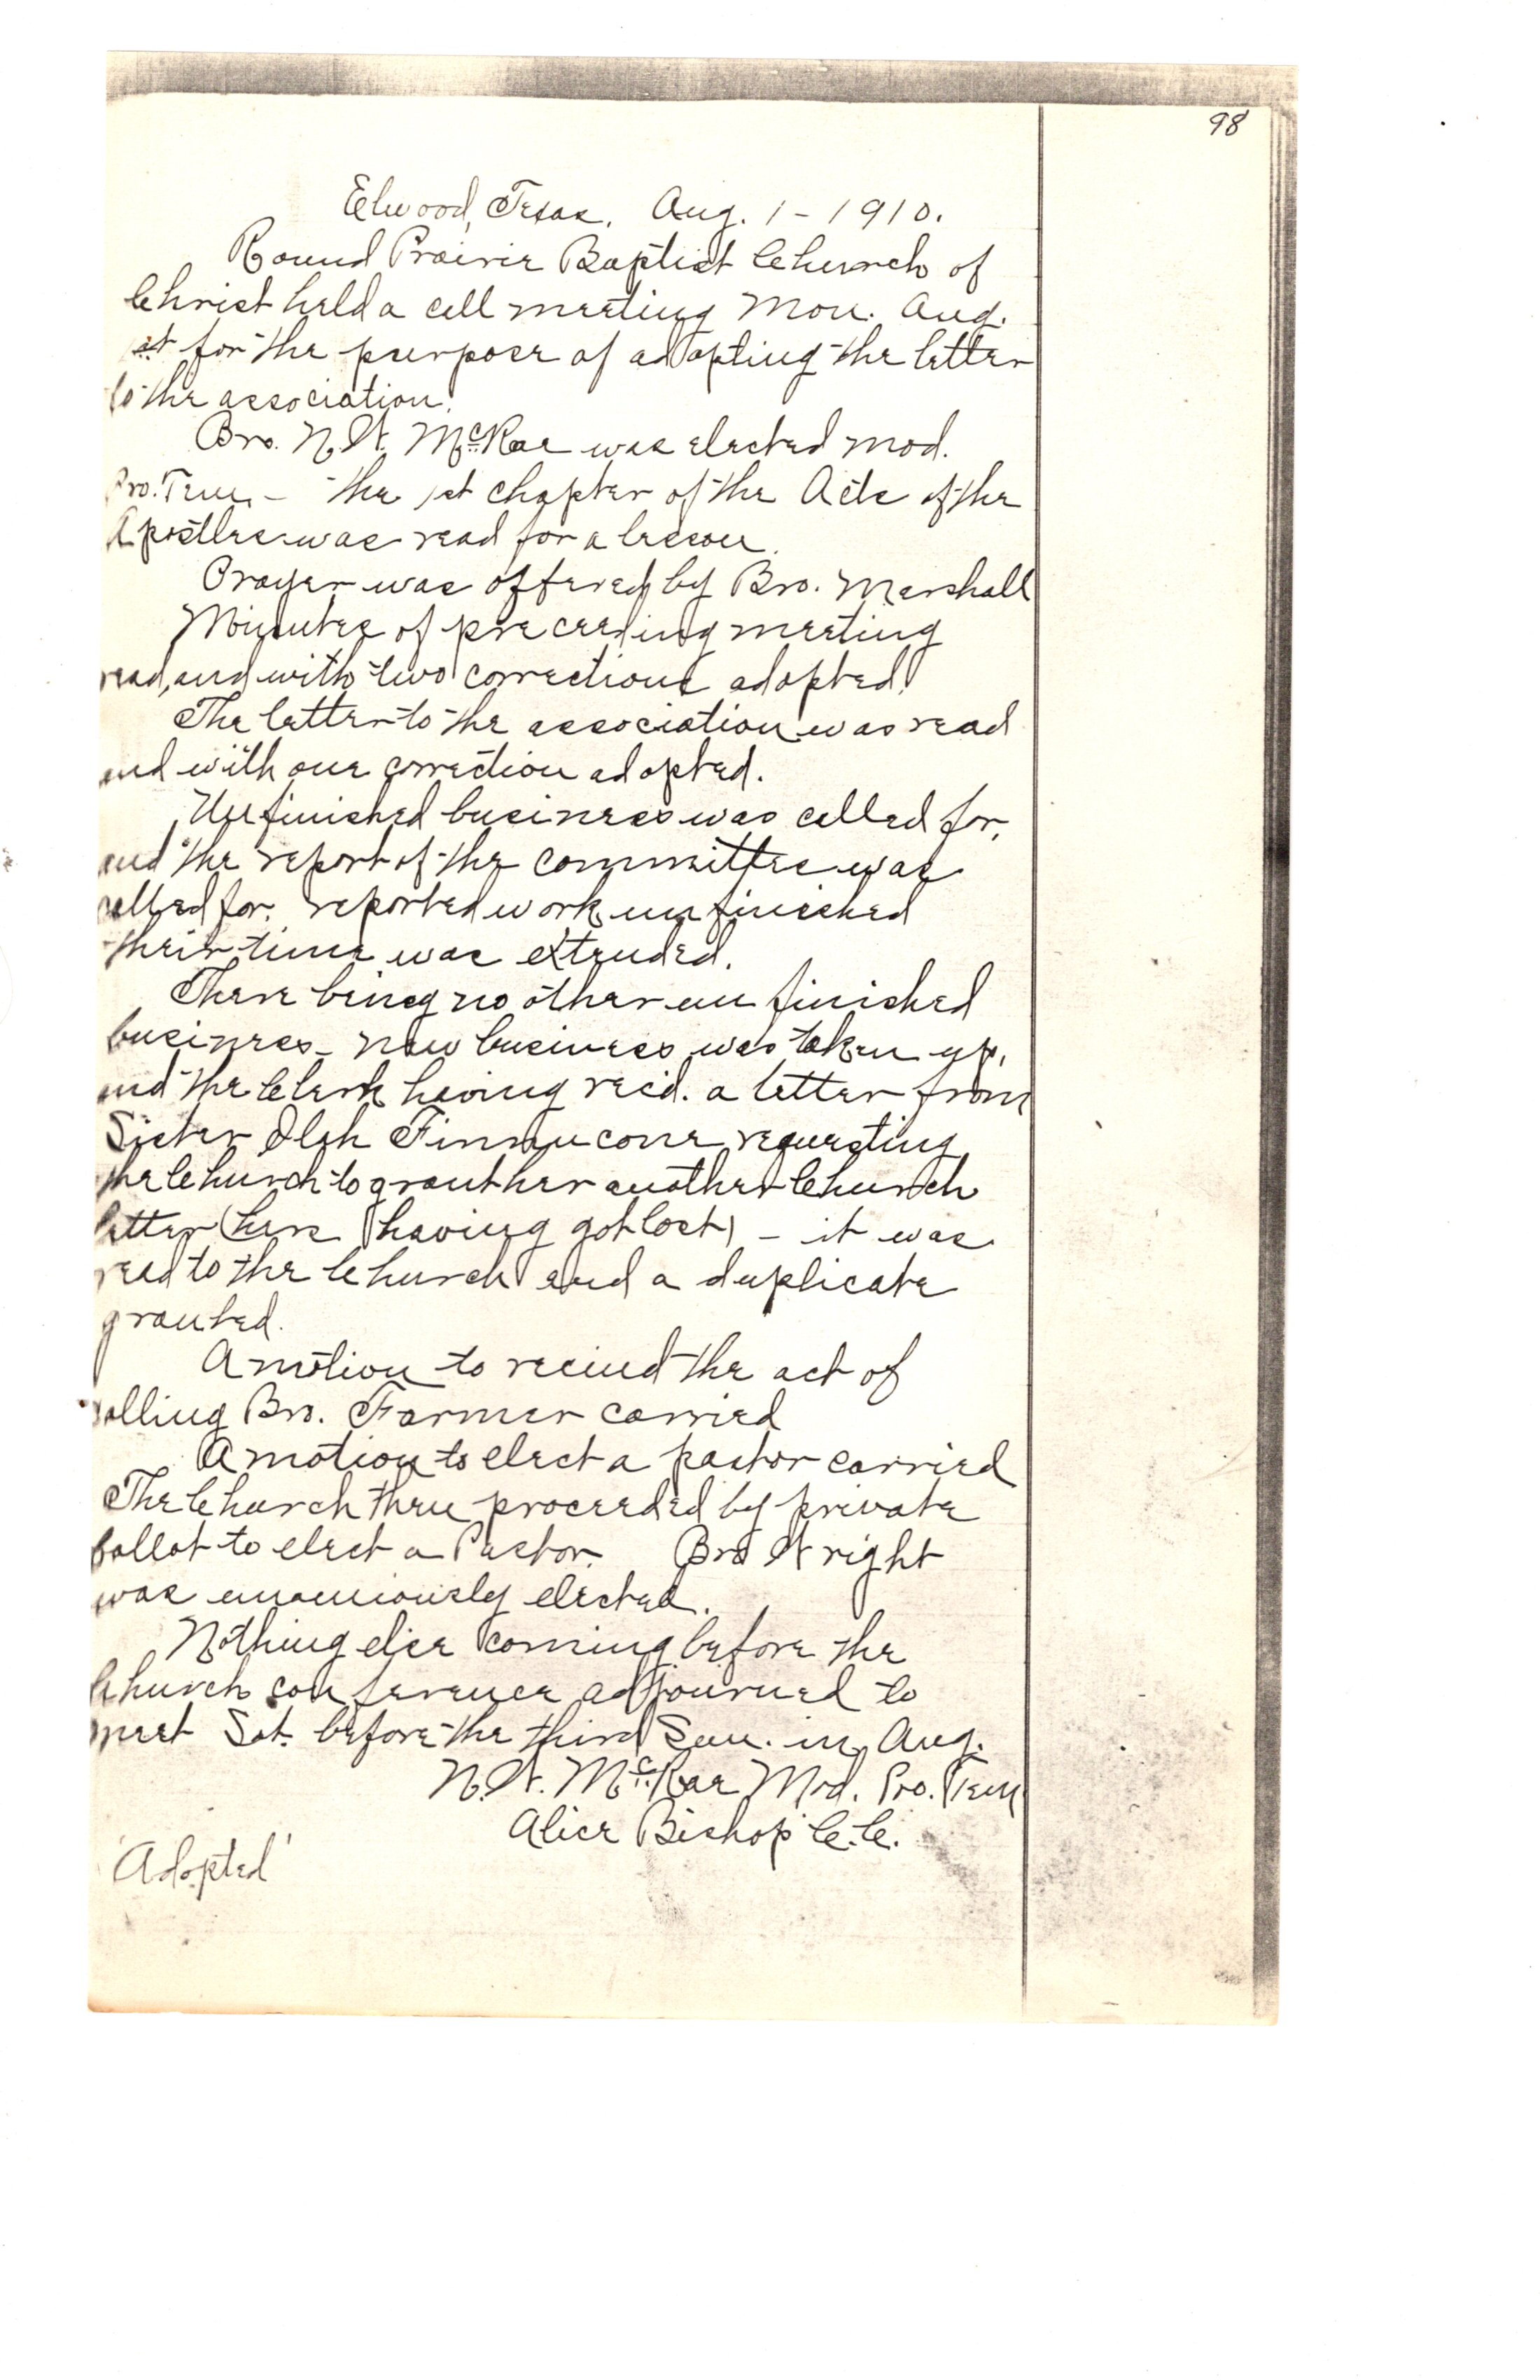 98
Elwood, Texas. Aug. 1 - 1910.
Round Prairie Baptist Church of
Christ held a call meeting Mon. Aug.
1st for the purpose of adopting the letter
to the association.
Bro. N. W. McRae was elected mod.
Pro. Tem. - the 1st chapter of the Acts of the
Apostles was read for a lesson.
Prayer was offered by Bro. Marshall
Minutes of preceeding meeting
read, and with two corrections adopted.
The letter to the association was read
and with one correction adopted.
Unfinished business was called for,
and the report of the committee was
called for. reported work unfinished
their time was extended.
There being no other unfinished
business - new business was taken up,
and the Clerk having rec'd. a letter from
Sister Olah requesting
the Church to grant her another Church
letter (hers having got lost) - it was
read to the Church and a duplicate
granted.
A motion to recind the act of
calling Bro. Farmer carried
A motion to elect a pastor carried
The Church then proceeded by private
ballot to elect a Pastor. Bro Wright
was elected.
Nothing else coming before the
Church conference adjourned to
meet Sat. before the third Sun. in Aug.
N. W. McRae Mod. Pro. Tem
Alice Bishop C. C.
'Adopted'